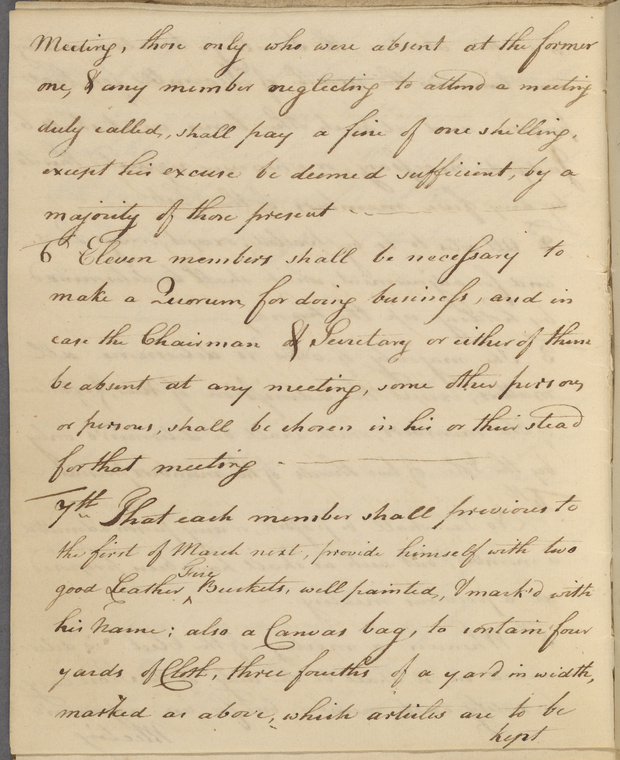 Meeting, those only who were absent at the former
one, & any member neglecting to attend a meeting
duly called, shall pay a fine of one shilling,
except his excuse be deemed sufficient, by a
majority of those present
6th Eleven members shall be necessary to
make a Quorum for doing business, and in
case the Chairman & Secretary or either of them
be absent at any meeting, some other person,
or persons, shall be chosen in his or their stead
for that meeting
7th That each member shall previous to
the first of March next, provide himself with two
good Leather Fire Buckets, well painted, & mark'd with
his Name; also a Canvas bag, to contain four
yards of Cloth, three fourths of a yard in width,
marked as above, which articles are to be
kept